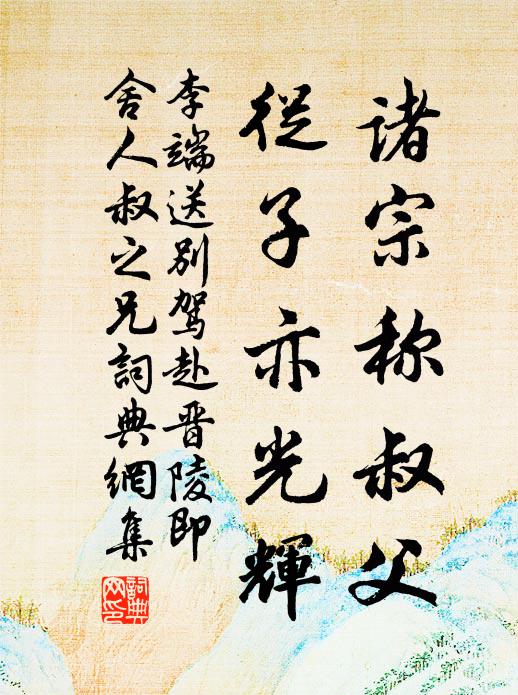 诸宗称叔父
從子亦光輝
李端送别駕赴晋陵即
舍人叔之兄詞典網集
詞典
网印